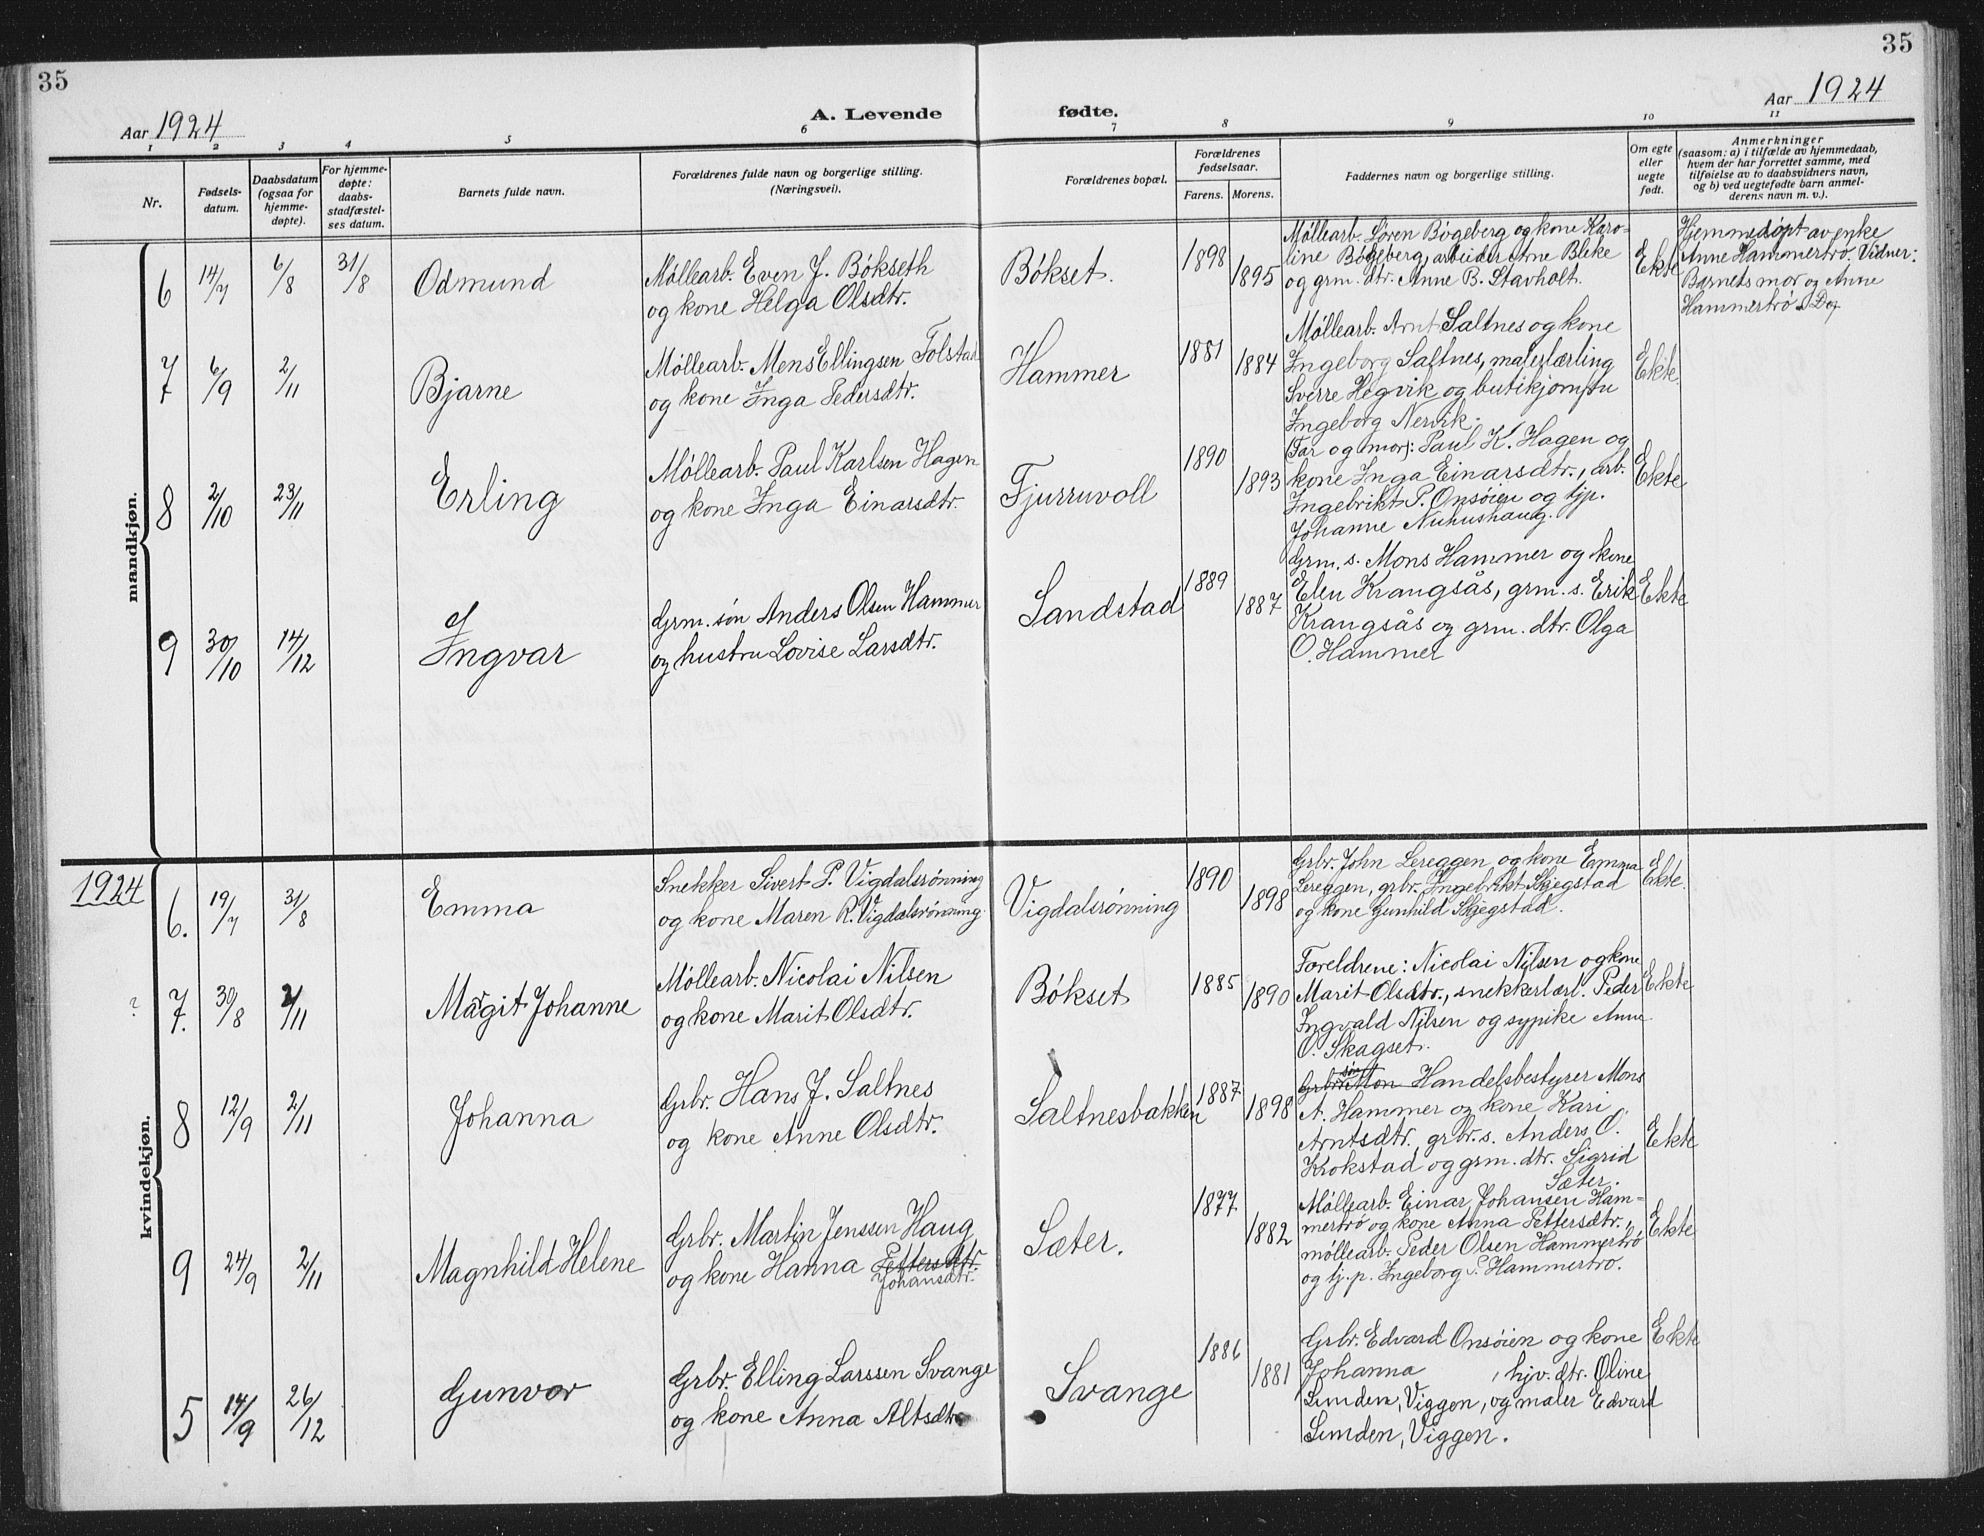 35
35
Aar 1924
A. Levende
fødte.
Aar 1924
1 2 3 4 5 6 7 8 9 10 11
Nr.
Fødsels-
datum.
Daabsdatum
(ogsaa for
hjemme-
døpte).
For hjemme-
døpte:
daabs-
stadfæstel-
ses datum.
Barnets fulde navn.
Forældrenes fulde navn og borgerlige stilling.
(Næringsvei).
Forældrenes bopæl.
Forældrenes
fødselsaar.
Farens. Morens.
Faddernes navn og borgerlige stilling.
Om egte
eller
uegte
født.
Anmerkninger
(saasom: a) i tilfælde av hjemmedaab,
hvem der har forrettet samme, med
tilføielse av to daabsvidners navn,
og b) ved uegtefødte barn anmel-
derens navn m. v.).
mandkjøn.
6 14/7 6/8 31/8 Odmund
Møllearb. Even J. Bökseth
og kone Helga Olsdtr.
Bökset.
1898
1895
Møllearb. Søren Bøgeberg og kone Karo-
line Bøgeberg, arbeider Arne Bleke
og grm. dtr. Anne B. Stavholt.
Ekte
Hjemmedøpt av enke
Anne Hammertrø. Vidner:
Barnets mor og Anne
Hammertrø
7 6/9 2/11 Bjarne
Møllearb. Mens Ellingsen Tolstad
og kone Inga Pedersdtr.
Hammer
1881
1884
Møllearb. Arnt Saltnes og kone
Ingeborg Saltnes, malerlærling
Sverre Hegvik og butikjomfru
Ingeborg Nervik.
Ekte.
8 2/10 23/11 Erling
Møllearb. Paul Karlsen Hagen
og kone Inga Einarsdtr.
Fjurruvoll
1890
1893
Far og mor: Paul K. Hagen og
kone Inga Einarsdtr., arb.
Ingebrikt P. Onsöien og tjp.
Johanne Nuhushaug.
Ekte
9 30/10 14/12 Ingvar
Grm. søn Anders Olsen Hammer
og hustru Lovise Larsdtr.
Sandstad
1889
1887
Grm. s. Mons Hammer og kone
Elen Krangsås, grm. s. Erik
Krangsås og grm. dtr. Olga
O. Hammer
Ekte
1924
kvindekjøn.
6. 19/7 31/8 Emma
Snekker Sivert P. Vigdalsrönning
og kone Maren R. Vigdalsrönning.
Vigdalsrönning
1890
1898
Grbr. John Lereggen og kone Emma
Lereggen, grbr. Ingebrikt Skjegstad
og kone Gunhild Skjegstad.
Ekte.
?
7. 30/8 2/11 Margit Johanne
Møllearb. Nicolai Nilsen
og kone Marit Olsdtr.
Bökset
1885
1890
Foreldrene: Nicolai Nilsen og kone
Marit Olsdtr., snekkerlærl. Peder
Ingvald Nilsen og sypike Anne
O. Skagset.
Ekte
8 12/9 2/11 Johanna
Grbr. Hans J. Saltnes
og kone Anne Olsdtr.
Saltnesbakken
1887
1898
søn
Grbr. Mon Handelsbestyrer Mons
A. Hammer og kone Kari
Arntsdtr. grbr. s. Anders O.
Krokstad og grm. dtr. Sigrid
Sæter.
Ekte
9 24/9 2/11 Magnhild Helene
Grbr. Martin Jenssen Haug
og kone Hanna Petters dtr.
Johansdtr.
Sæter.
1877
1882
Møllearb. Einar Johansen Ham-
mertrø og kone Anna Pettersdtr.,
møllearb. Peder Olsen Hammertrø
og tj. p. Ingeborg P. Hammertrø.
Ekte
5 14/9 26/12 Gunvor
Grbr. Elling Larssen Svange
og kone Anna Altsdtr
Svange
1886
1881
Grbr. Edvard Onsöien og kone
Johanna , hjv. dtr. Oline
Linden, Viggen, og maler Edvard
Linden, Viggen.
Ekte